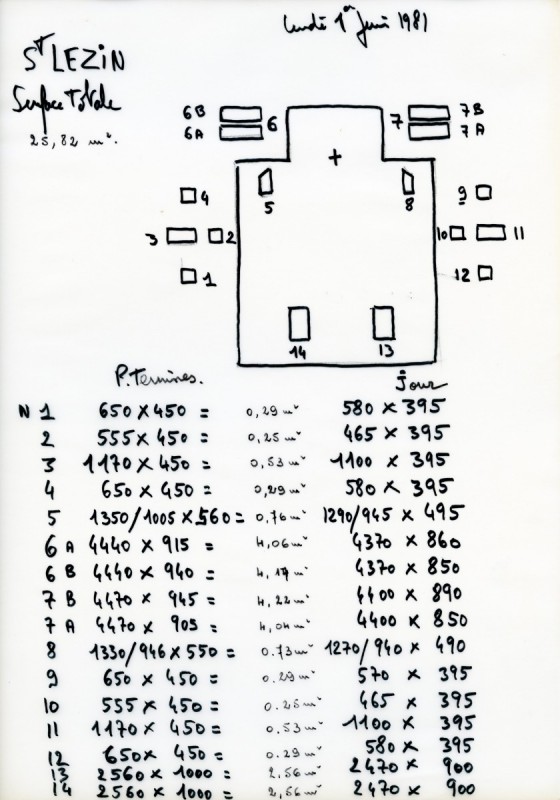 Lundi 1er Juin 1981
ST LEZIN
Surface Totale
25,82 m².
6B 6 7 7B
6A 7A
4 5 8 9
3 2 10 11
1 12
14 13
P. Termines. Jour
N 1 650 x 450 = 0,29 m² 580 x 395
2 555 x 450 = 0,25 m² 465 x 395
3 1170 x 450 = 0,53 m² 1100 x 395
4 650 x 450 = 0,29 m² 580 x 395
5 1350/1005 x 560 = 0.76 m² 1290/945 x 495
6 A 4440 x 915 = 4,06 m² 4370 x 860
6 B 4440 x 940 = 4,17 m² 4370 x 850
7 B 4470 x 945 = 4,22 m² 4400 x 890
7 A 4470 x 905 = 4,04 m² 4400 x 850
8 1330/946 x 550 = 0.73 m² 1270/940 x 490
9 650 x 450 = 0.29 m² 570 x 395
10 555 x 450 = 0.25 m² 465 x 395
11 1170 x 450 = 0.53 m² 1100 x 395
12 650 x 450 = 0.29 m² 580 x 395
13 2560 x 1000 = 2,56 m² 2470 x 900
14 2560 x 1000 = 2,56 m² 2470 x 900